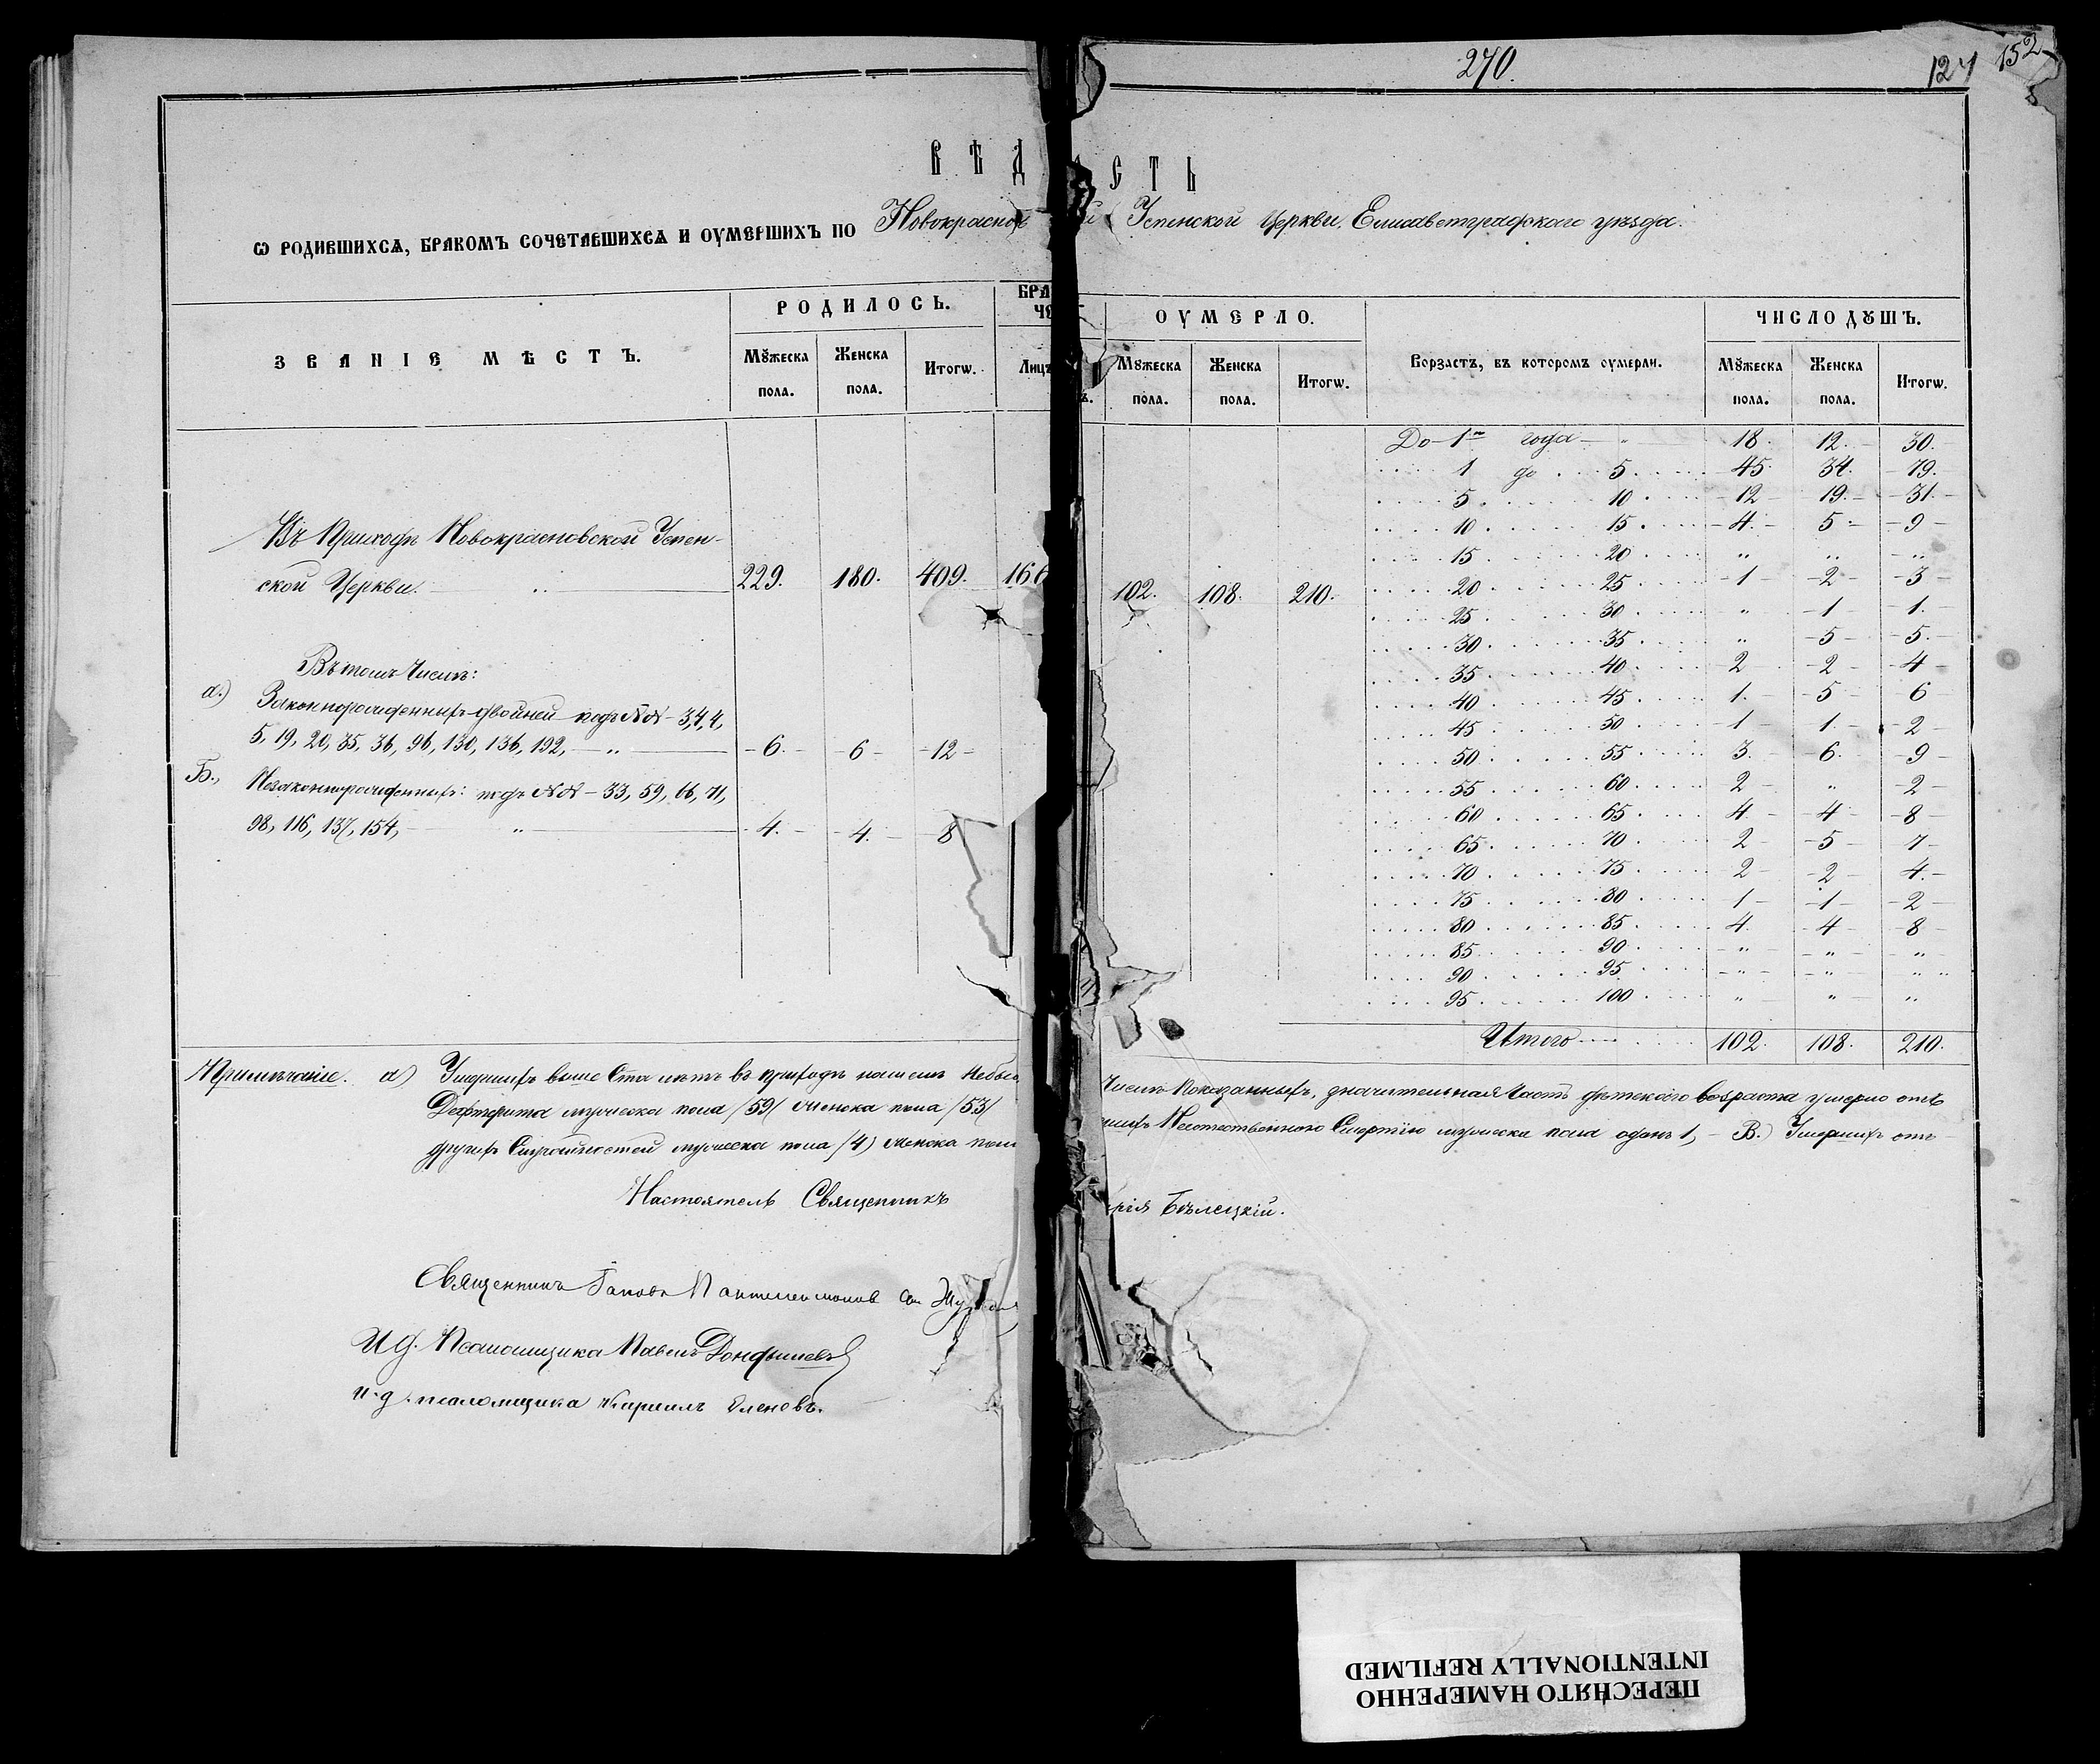 270.
127 152
ВѢД СТЬ
Ѡ РОДИВШИХСѦ, БРАКОМЪ СОЧЕТАВШИХСѦ И ОУМЕРШИХЪ ПО Новокраснов й Успенской Церкви, Елисаветградскаго уѣзда.
ЗВАНІЕ МѢСТЪ. РОДИЛОСЬ. БРА ЧЕ ОУМЕРЛО. Ворзастъ, въ которомъ оумерли. ЧИСЛО ДꙊШЪ.
Мꙋжеска пола. Женска пола. Итогѡ. Лицъ Мꙋжеска пола. Женска пола. Итогѡ. Мꙋжеска пола. Женска пола. Итогѡ.
Въ Приходѣ Новокрасновской Успен-
ской Церкви. 229. 180. 409. 166 102. 108. 210.
Въ томъ числѣ:
а.) Законнорожденныхъ двойней подъ №№ – 3, 4, 4,
5, 19, 20, 35, 36, 96, 130, 136, 192, – „ – 6. – 6 – 12 –
Б., Незаконнорожденныхъ: подъ №№ – 33, 59, 66, 71,
98, 116, 137, 154, – „ – 4. – 4. – 8
До 1го года – „ 18. 12. 30.
1 до 5 45. 34. 79.
5 10 12 19. 31.
10 15 4. 5 9
15 20 „ „ „
20 25 1 2 3
25 30 „ 1 1.
30 35 „ 5 5.
35 40 2 2 4
40 45 1. 5 6
45 50 1 1 2
50 55 3. 6. 9
55 60 2 „ 2
60 65 4. 4 8
65 70 2 5 7
70 75 2 2 4.
75 80 1 1 2
80 85 4. 4 8
85 90 „ „ „
90 95 „ „ „
95 100 „ „ „
Итого 102. 108. 210.
Примѣчаніе. а) Умершихъ выше ста лѣтъ въ приходѣ нашемъ небы числѣ показанныхъ, значительная часть дѣтскаго возраста умерло отъ
Дифтерита мужеска пола /59/ женска пола /53/ Неестественною Смертію мужеска пола одинъ 1, – В.) Умершихъ отъ
другихъ мужеска пола /4/ женска пол
Настоятель Священникъ рія Бѣлецкій.
Священникъ Пантелеимонов
И. д. Псаломщика Павелъ
и. д. псаломщика Кирилъ Еленовъ.
ПЕРЕСНЯТО НАМЕРЕННО
INTENTIONALLY REFILMED